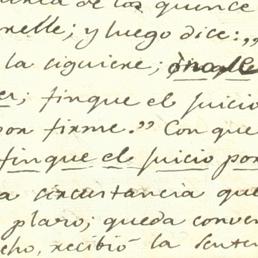 de los quence
onelle; y luego dice: „
la siguiere; onalle
er; finque el juicio
por firme.” Con que
finque el juicio por
a circustancia que
plazo; queda conven
cho, recibió la senten